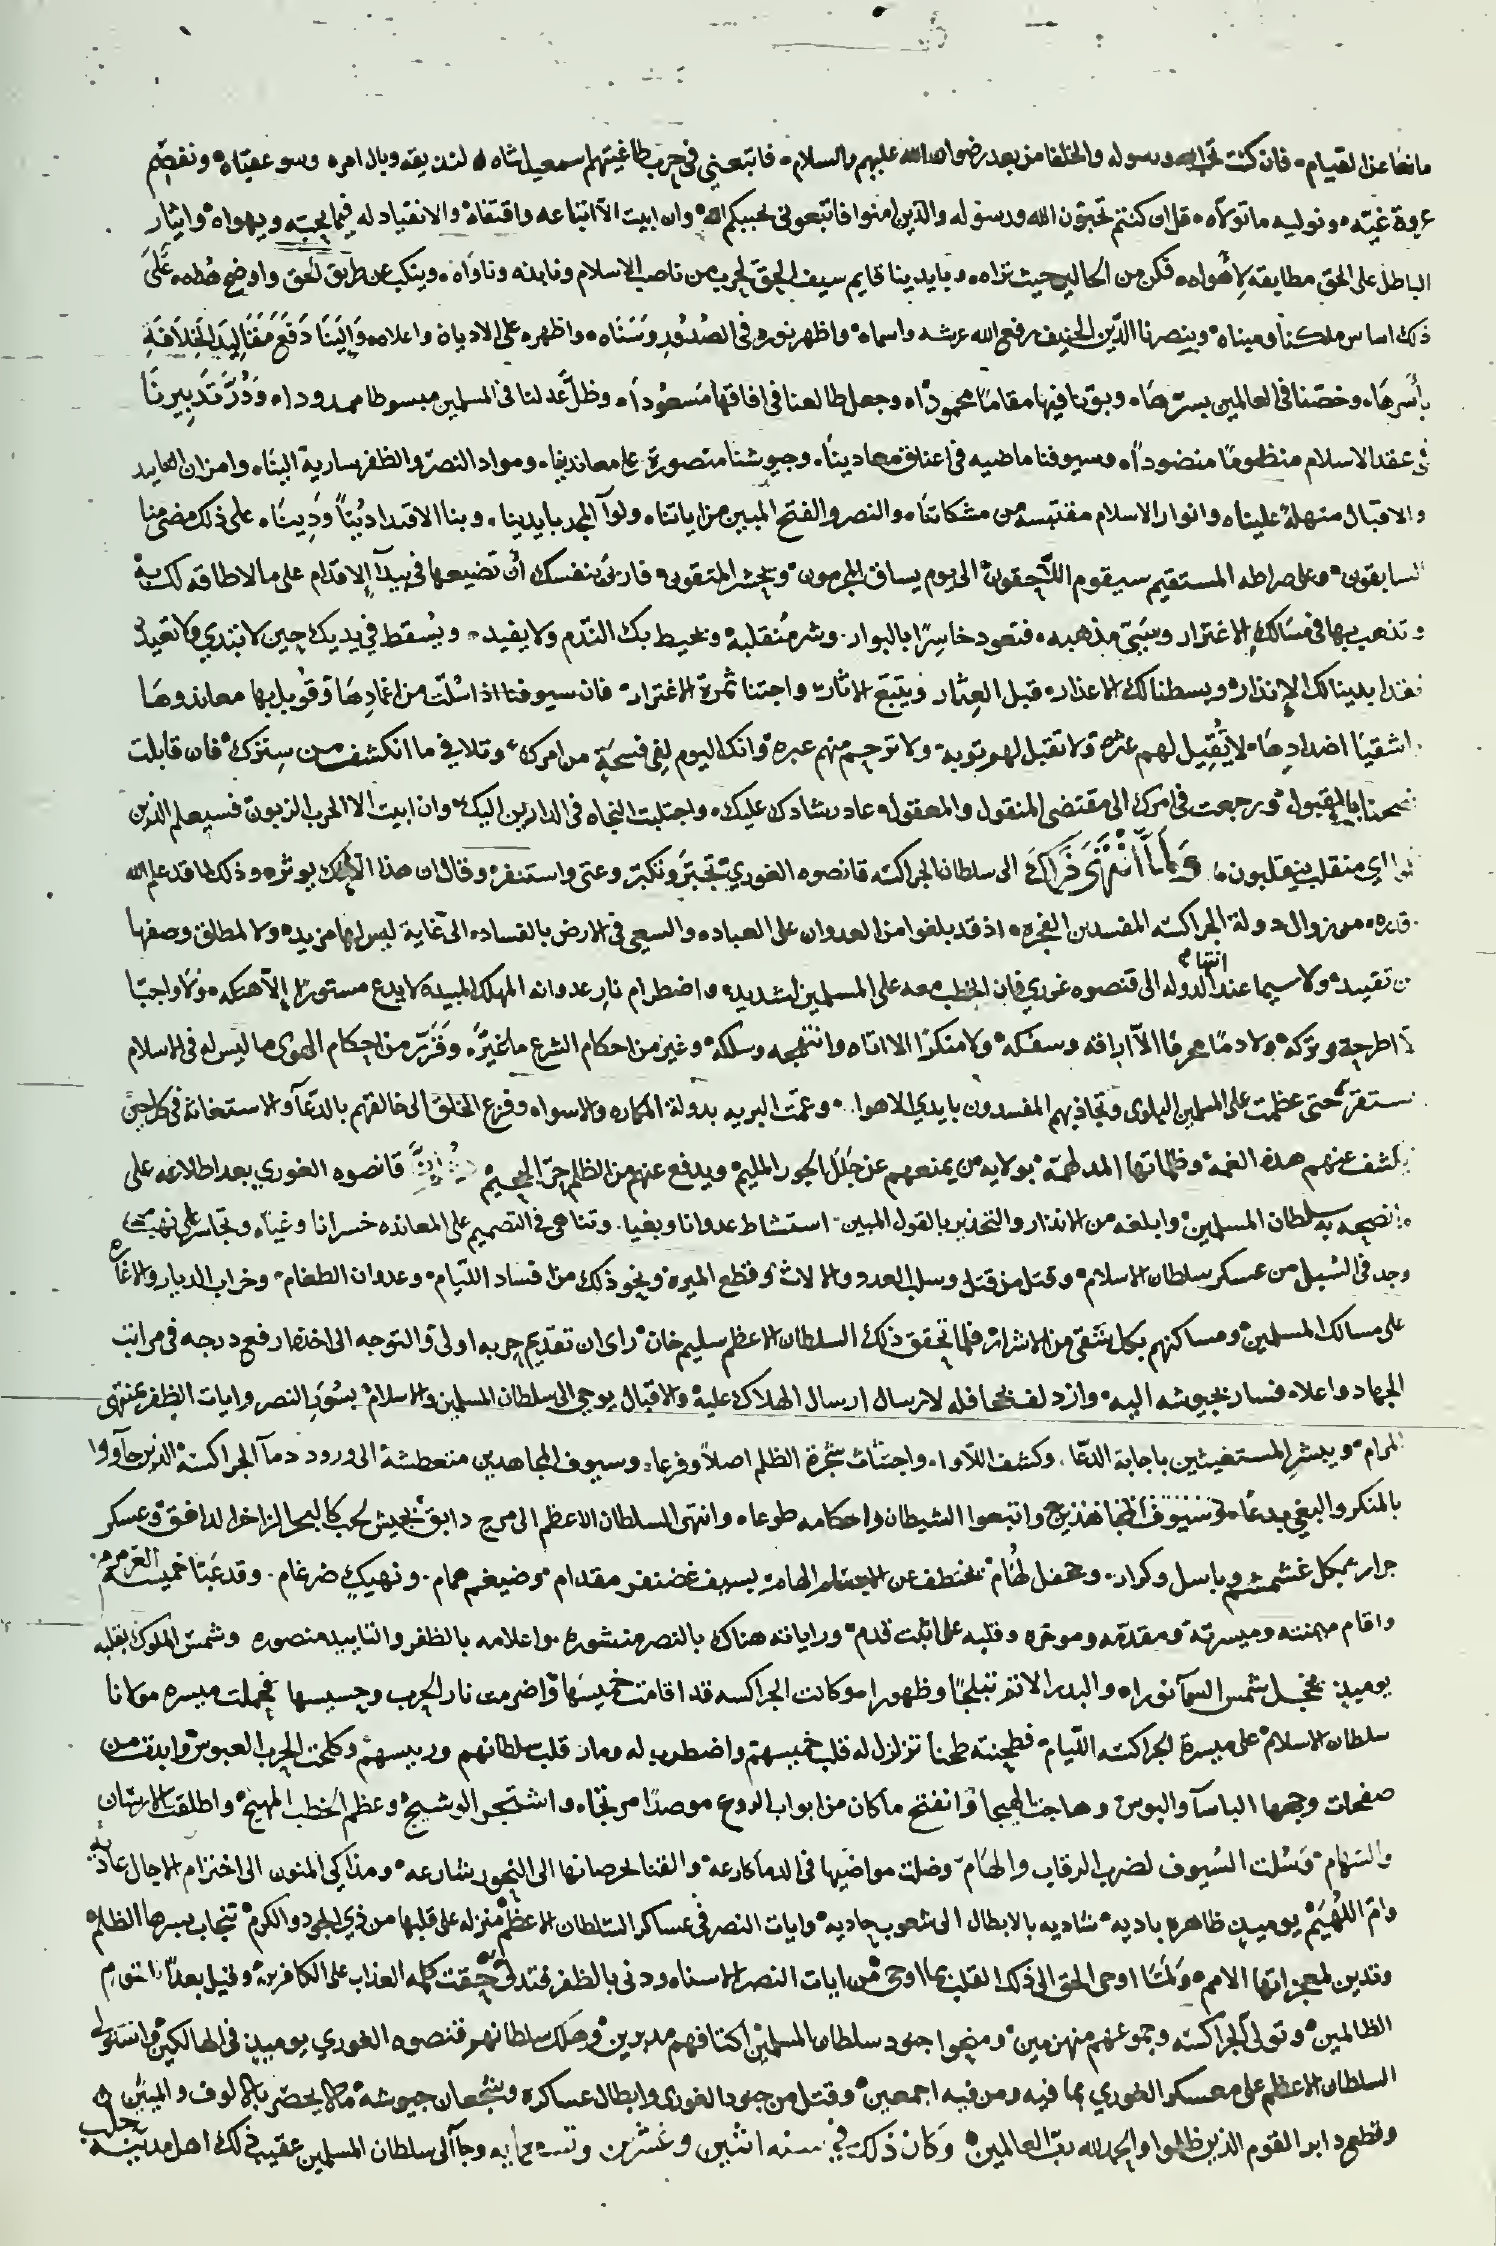 مانعا عن القيام فان كنت تحب الله ورسوله والخلفا من بعد رضوان الله عليهم والسلام فاتبعني في حرب طاغيتهم اسمعيل شاه لنذيقه وبال امره وسو عقباه ونفصم
عروة غيه ونوليه ما تولاه قل ان كنتم تحبون الله ورسوله والذين امنوا فاتبعوني يحببكم الله وان ابيت الا اتباعه واقتفاه والانقياد له فيما يحبه ويهواه وايثار
الباطل على الحق مطابقة لأهواه فكن من الحالين حيث تراه وبايدينا قايم سيف الحق لحرب من ناصب الاسلام ونابذه وناواه وينكب عن طريق الحق واوضح هداه على
ذلك اساس ملكنا ومبناه وبنصرنا الدين الحنيف رفع الله عرشه واسماه واظهر نوره في الصدور وسناه واظهره على الاديان واعلاه والينا دفع مقاليد الخلافة
بأسرها وخصنا في العالمين بسرها وبوّنا فيها مقاما محمودا وجعل طالعنا في افاقها مسعودا وظل عدلنا في المسلمين مبسوطا ممدودا ودُرَّ تدبيرنا
في عقد الاسلام منظوما منضودا وسيوفنا ماضيه في اعناق معادينا وجيوشنا منصورة على معاندينا ومواد النصر والظفر سارية الينا وامزان
والاقبال منهلة علينا وانوار الاسلام مقتبسة من مشكاتنا والنصر والفتح المبين من راياتنا ولوآ المجد بايدينا وبنا الاقتدا دنيا ودينا على ذلك مضى منا
السابقون وعلى صراطه المستقيم سيقوم اللاحقون الى يوم يساق المجرمون ويحشر المتقون فاربئ بنفسك أن تضيعها في بيدآ الاقدام على ما لا طاقة لك به
وتذهب بها في مسالك الاغترار وسيئ مذهبه فتعود خاسرا بالبوار وشر منقلبه ويحيط بك الندم ولا يفيد ويسقط في يديك حين لا تبدي ولا تعيد
فقد ابدينا لك الانذار وبسطنا لك الاعذار قبل العثار وتتبع الاثار واجتنا ثمرة الاغترار فان سيوفنا اذا سُلّت من اغمادها وقوبل بها معاندوها
اشقيا اضدادها لا تُقيل لهم عثره ولا تقبل لهم توبه ولا ترحم منهم عبره وانك اليوم لفي فسحة من امرك وتلافي ما انكشف من سترك فان قابلت
نصحنا بالقبول ورجعت في امرك الى مقتضى المنقول والمعقول عاد رشادك عليك واجتلبت النجاه في الدارين اليك وان ابيت الا الحرب الزبون فسيعلم الذين
ظلموا اي منقلب ينقلبون ولما انتهى ذلك الى سلطان الجراكسه قانصوه الغوري تجبر وتكبر وعتى واستنفر وقال ان هذا الا يوثره وذلك لما قد علم الله
قدره من زوال دولة الجراكسه المفسدين الفجره اذ قد بلغوا من العدوان على العباد والسعي في الارض بالفساد الى غاية ليس لها مزيد ولا لمطلق وصفها
من تقييد ولا سيما عند انتهاء الدوله الى قنصوه غوري فان الخطب معه على المسلمين لشديد واضطرام نار عدوانه المهلك المبيد لا يدع مستورا إلا هتكه ولا واجبا
إلا اطرحه وتركه ولا دما محرما الا أراقه وسفكه ولا منكرا الا اتاه وانتهجه وسلكه وغير من احكام الشرع ما غيّره وقرر من احكام الهوى ما ليس له في الاسلام
مستقر حتى عظمت على المسلمين البلوى وتجاذبهم المفسدون بايدي الاهوا وعمّت البريه بدولة المكاره والاسواه وفزع الخلق الى خالقهم بالدعآ والاستغاثة في كل حين
يكشف عنهم هذه الغمة وظلماتها المدلهمة بولاية من يمنعهم عن جُلل الجور المليم ويدفع عنهم من الظلم حرّ الجحيم قانصوه الغوري بعد اطلاعه على
ما نصحه به سلطان المسلمين وابلغه من الانذار والتحذير بالقول المبين استشاط عدوانا وبغيا وتناهى في التصميم على المعانده خسرانا وغيّا وتجاسر على نهب من
وجد في السُبل من عسكر سلطان الاسلام وقتل من قتل وسلب العدد والالات وقطع الميره ونحو ذلك من افساد اللئيام وعدوان الطغام وخراب الديار والاغاره
على مسالك المسلمين ومساكنهم بكل شقي من الاشرار فلما تحقق ذلك السلطان الاعظم سليم خان راى ان تقديم حربه اولى والتوجه الى اخذه ارفع درجه في مراتب
الجهاد واعلاه فسار بجيوشه اليه وازدلف بجحافله لارسال ارسال الهلاك عليه والاقبال يوحي الى سلطان المسلمين والاسلام بسُور النصر وايات الظفر بمنتهى
المرام ويبشر المستغيثين باجابة الدعا وكشف اللاوا واجتثاث شجرة الظلم اصلا وفرعا وسيوف المجاهدين متعطشة الى ورود دمآ الجراكسة الذين جآووا
بالمنكر والبغي بدعا واتبعوا الشيطان واحكامه طوعا وانتهى السلطان الاعظم الى مرج دابق بجيش لحب كالبحر الزاخر الدافق وعسكر
جرار بكل غشمشم وباسل وكرار وجحفل لهام تختطف عن الاجسام الهام بسيف غضنفر مقدام وضيغم همام ونهيك ضرغام وقد عبّا خميسه العرمرم
واقام ميمنته وميسرته ومقدمه وموخره وقلبه على اثبت قدم وراياته هناك بالنصر منشوره واعلامه بالظفر والتاييد منصوره وشمس الملوك بقلبه
يوميذ تخجل شمس السمآ نورا والبدر الاتم تبلجا وظهورا وكانت الجراكسه قد اقامت خميسها واضرمت نار الحرب وحسيسها فحملت ميسره مولانا
سلطان الاسلام على ميسرة الجراكسة اللئيام فطحنته طحنا تزلزل له قلب خميسهم واضطرب له ومار قلب سلطانهم ورييسهم وكلحت الحرب العبوس وابدت من
صفحات وجهها الباسآ والبوس وهاجت الهيجا وانفتح ما كان من ابواب الروع موصدا مرتجاه واشتجر الوشيج وعظم الخطب المهيج واطلقت الارسان
والسهام وسُلت السيوف لضرب الرقاب والهام وضلت مواضيها في الدما كارعه والقنا لخرصانها الى النحور شارعه ومذاكي المنون الى اخترام الاجال عاديه
وامّ اللُهَيْم يوميذ ظاهره باديه شاديه بالابطال الى شعوب حاديه وايات النصر في عساكر السلطان الاعظم منزله على قلبها من ذي الجود والكرم تنجاب بسرها الظلم
وتدين لمعجزاتها الامم ولمّا اوحى الحق الى ذلك القلب ما اوحى من ايات النصر الاسناه ودنى بالظفر فتدلى حقت كلمه العذاب على الكافرين وقيل بعدا للقوم
الظالمين وتولى الجراكسه وجموعهم منهزمين ومنحوا جنود سلطان المسلمين اكتافهم مدبرين وهلك سلطانهم قنصوه الغوري يوميذ في الهالكين واستولى
السلطان الاعظم على معسكر الغوري بما فيه ومن فيه اجمعين وقتل من جنود الغوري وابطال عساكره وشجعان جيوشه ما لا يحصر بالالوف والميين
وقطع دابر القوم الذين ظلموا والحمد لله رب العالمين وكان ذلك في سنه اثنين وعشرين وتسعمايه وجآ الى سلطان المسلمين عقيب ذلك اهل مدينة حلب